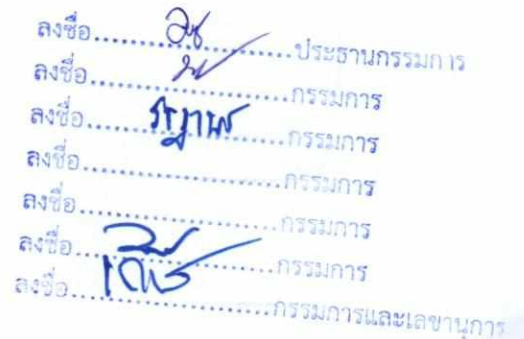 ลงชื่อ....................ประธานกรรมการ
ลงชื่อ....................กรรมการ
ลงชื่อ....................กรรมการ
ลงชื่อ....................กรรมการ
ลงชื่อ....................กรรมการ
ลงชื่อ....................กรรมการ
ลงชื่อ....................กรรมการและเลขานุการ